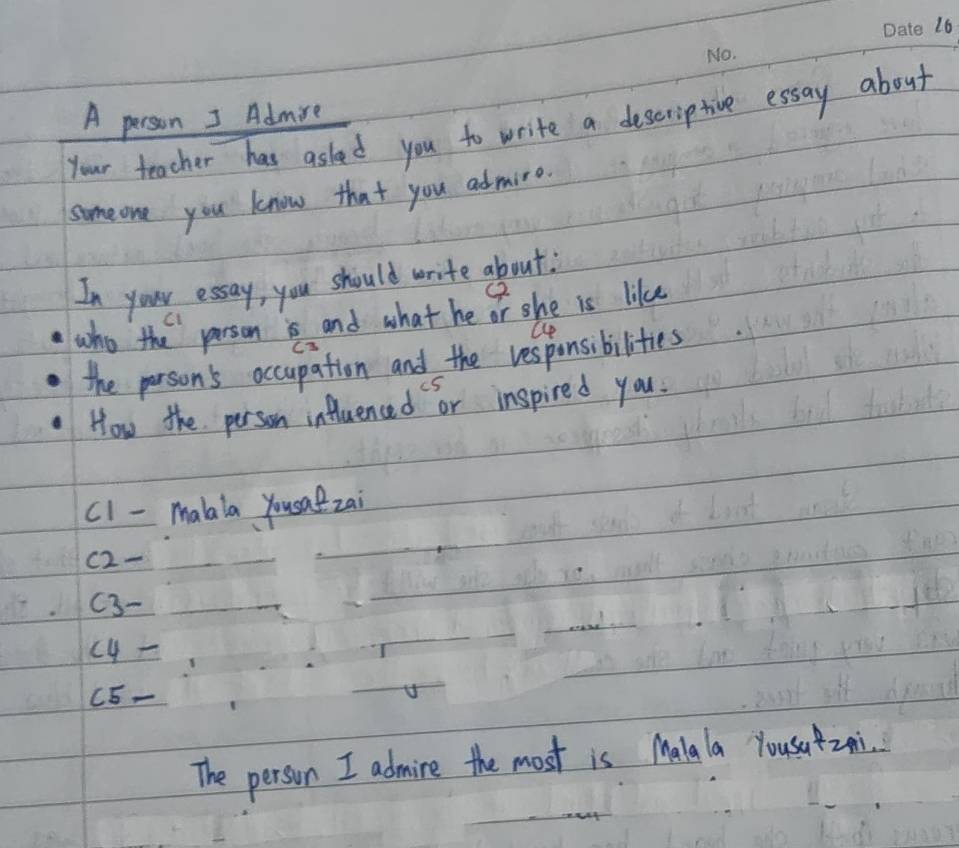 Date 26
No.
A person I Admire
Your teacher has asked you to write a descriptive essay about
someone you know that you admire.
In your essay, you should write about:
C1 C2
• who the person is and what he or she is like
C3 C4
• the person's occupation and the responsibilities.
C5
• How the person influenced or inspired you.
C1 - Malala Yousafzai
C2 -
C3 -
C4 -
C5 -
The person I admire the most is Malala Yousufzai..